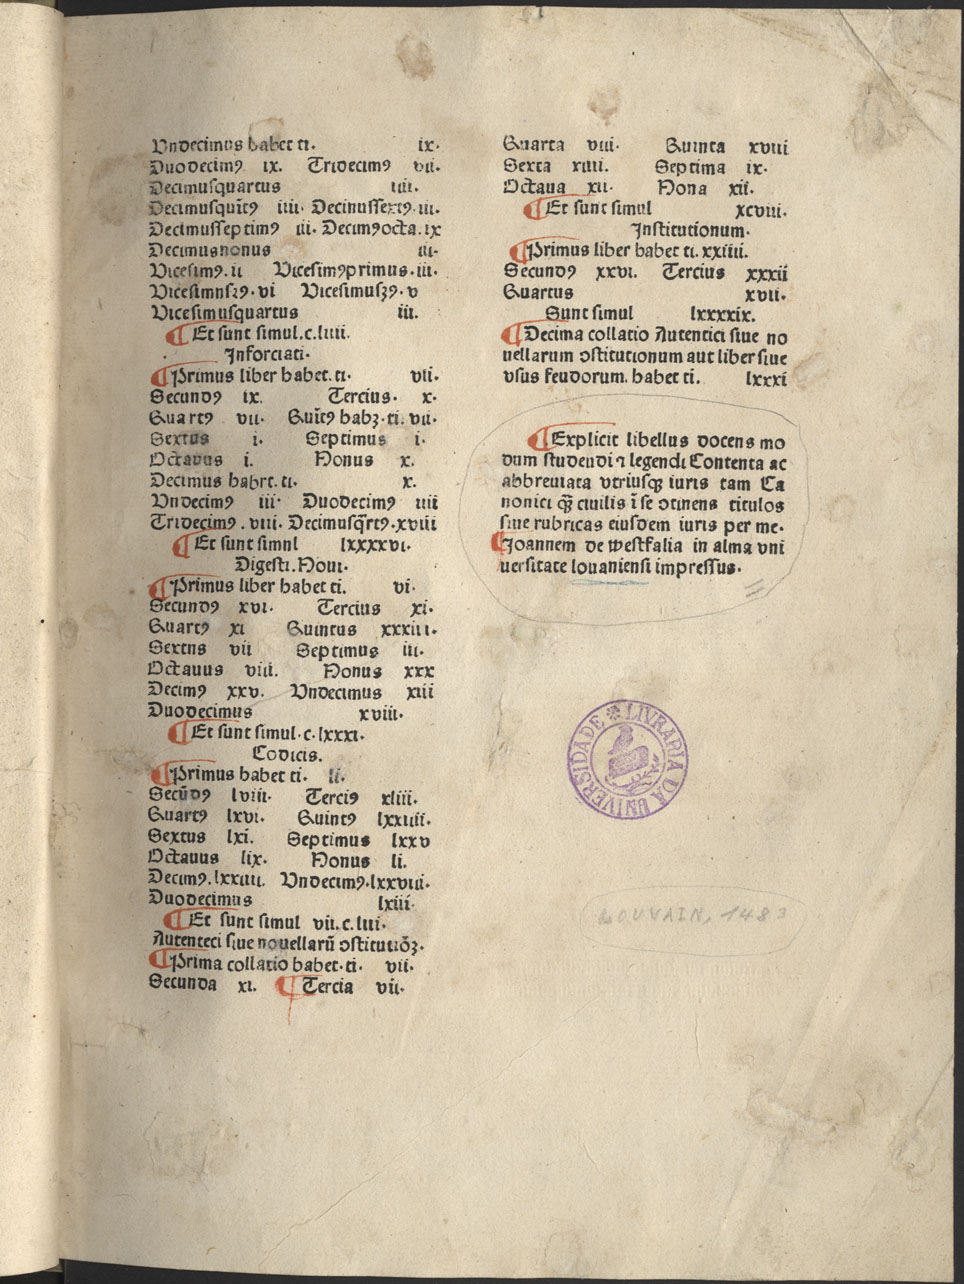 Vndecimus habet ti. ix.
Duodecimꝰ ix. Tridecimꝰ vii.
Decimusquartus iiii.
Decimusquītꝰ iiii. Decimussextꝰ. iii.
Decimusseptimꝰ iii. Decimꝰocta. ix
Decimusnonus iii.
Vicesimꝰ. ii Vicesimꝰprimus. iii.
Vicesimusꝫꝰ. vi Vicesimusꝫꝰ. v
Vicesimusquartus iii.
¶ Et sunt simul. c. liiii.
Inforciati.
¶ Primus liber habet. ti. vii.
Secundꝰ ix. Tercius. x.
Quartꝰ vii. Quītꝰ habꝫ. ti. vii.
Sextus i. Septimus i.
Octauus i. Nonus x.
Decimus habet. ti. x.
Vndecimꝰ iii. Duodecimꝰ iiii
Tridecimꝰ. viii. Decimusq̄rtꝰ. xviii
¶ Et sunt simnl lxxxxvi.
Digesti. Noui.
¶ Primus liber habet ti. vi.
Secundꝰ xvi. Tercius xi.
Quartꝰ xi Quintus xxxiii.
Sextns vii Septimus iii.
Octauus viii. Nonus xxx
Decimꝰ xxv. Vndecimus xiii
Duodecimus xviii.
¶ Et sunt simul. c. lxxxi.
Codicis.
¶ Primus habet ti. li.
Secūdꝰ lviii. Terciꝰ xliii.
Quartꝰ lxvi. Quintꝰ lxxiiii.
Sextus lxi. Septimus lxxv
Octauus lix. Nonus li.
Decimꝰ. lxxiiii. Vndecimꝰ. lxxviii.
Duodecimus lxiii.
¶ Et sunt simul vii. c. liii.
Autenteci siue nouellarū ↄstitutiōꝫ.
¶ Prima collatio habet. ti. vii.
Secunda xi. ¶ Tercia vii.
Quarta viii. Quinta xviii
Sexta xiiii. Septima ix.
Octaua xii. Nona xii.
¶ Et sunt simul xcviii.
Institutionum.
¶ Primus liber habet ti. xxiiii.
Secundꝰ xxvi. Tercius xxxii
Quartus xvii.
Sunt simul lxxxxix.
¶ Decima collatio Autentici siue no
uellarum ↄstitutionum aut liber siue
vsus feudorum. habet ti. lxxxi
¶ Explicit libellus docens mo
dum studendi ⁊ legendi Contenta ac
abbreuiata vtriusqꝫ iuris tam Ca
nonici q̄ꝫ ciuilis ī se ↄtinens titulos
siue rubricas eiusdem iuris per me.
¶ Joannem de westfalia in alma vni
uersitate louaniensi impressus.
LIVRARIA DA UNIVERSIDADE
LOUVAIN, 1483